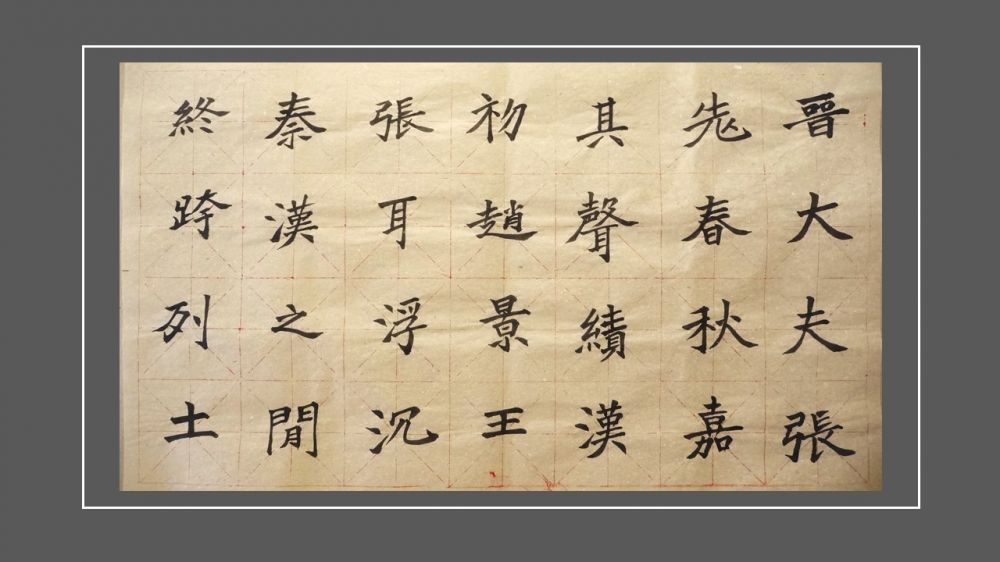 晉大夫張
老春秋嘉
其聲績漢
初趙景王
張耳浮沉
秦漢之閒
終跨列土